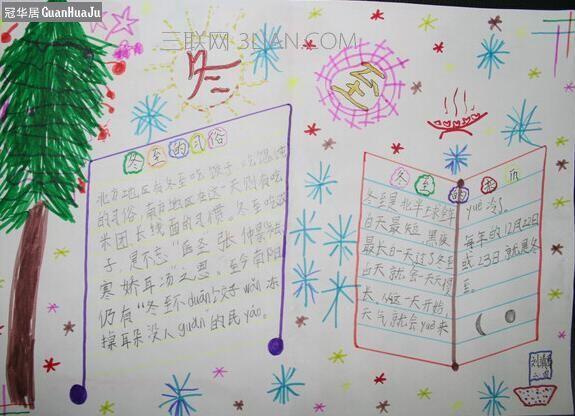 冠华居 GuanHuaJu
三联网 3LIAN.COM
冬
至
冬至的习俗
北方地区有冬至吃饺子、吃馄饨
的习俗,南方地区在这一天则有吃
米团、长线面的习惯。冬至吃饺
子,是不忘“医圣”张仲景“祛
寒娇耳汤”之恩。至今南阳
仍有“冬至不duān饺子wǎn,冻
掉耳朵没人guǎn”的民yáo。
冬至的来历
冬至是北半球全年
白天最短、黑夜
最长的一天过了冬至
白天就会一天天变
长,从这一天开始
天气就会yuè来
yuè冷。
每年的12月22日
或23日就是冬
至。